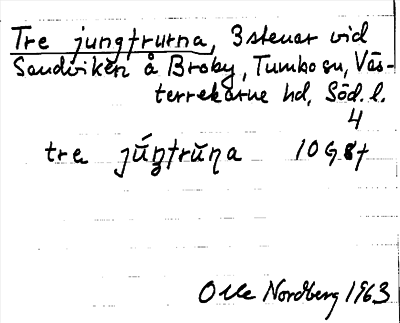 Tre jungfrurna, 3 stenar vid
Sandviken å Broby, Tumbo sn, Väs-
terrekarne hd, Söd. l.
4
tre
Olle Nordberg 1963